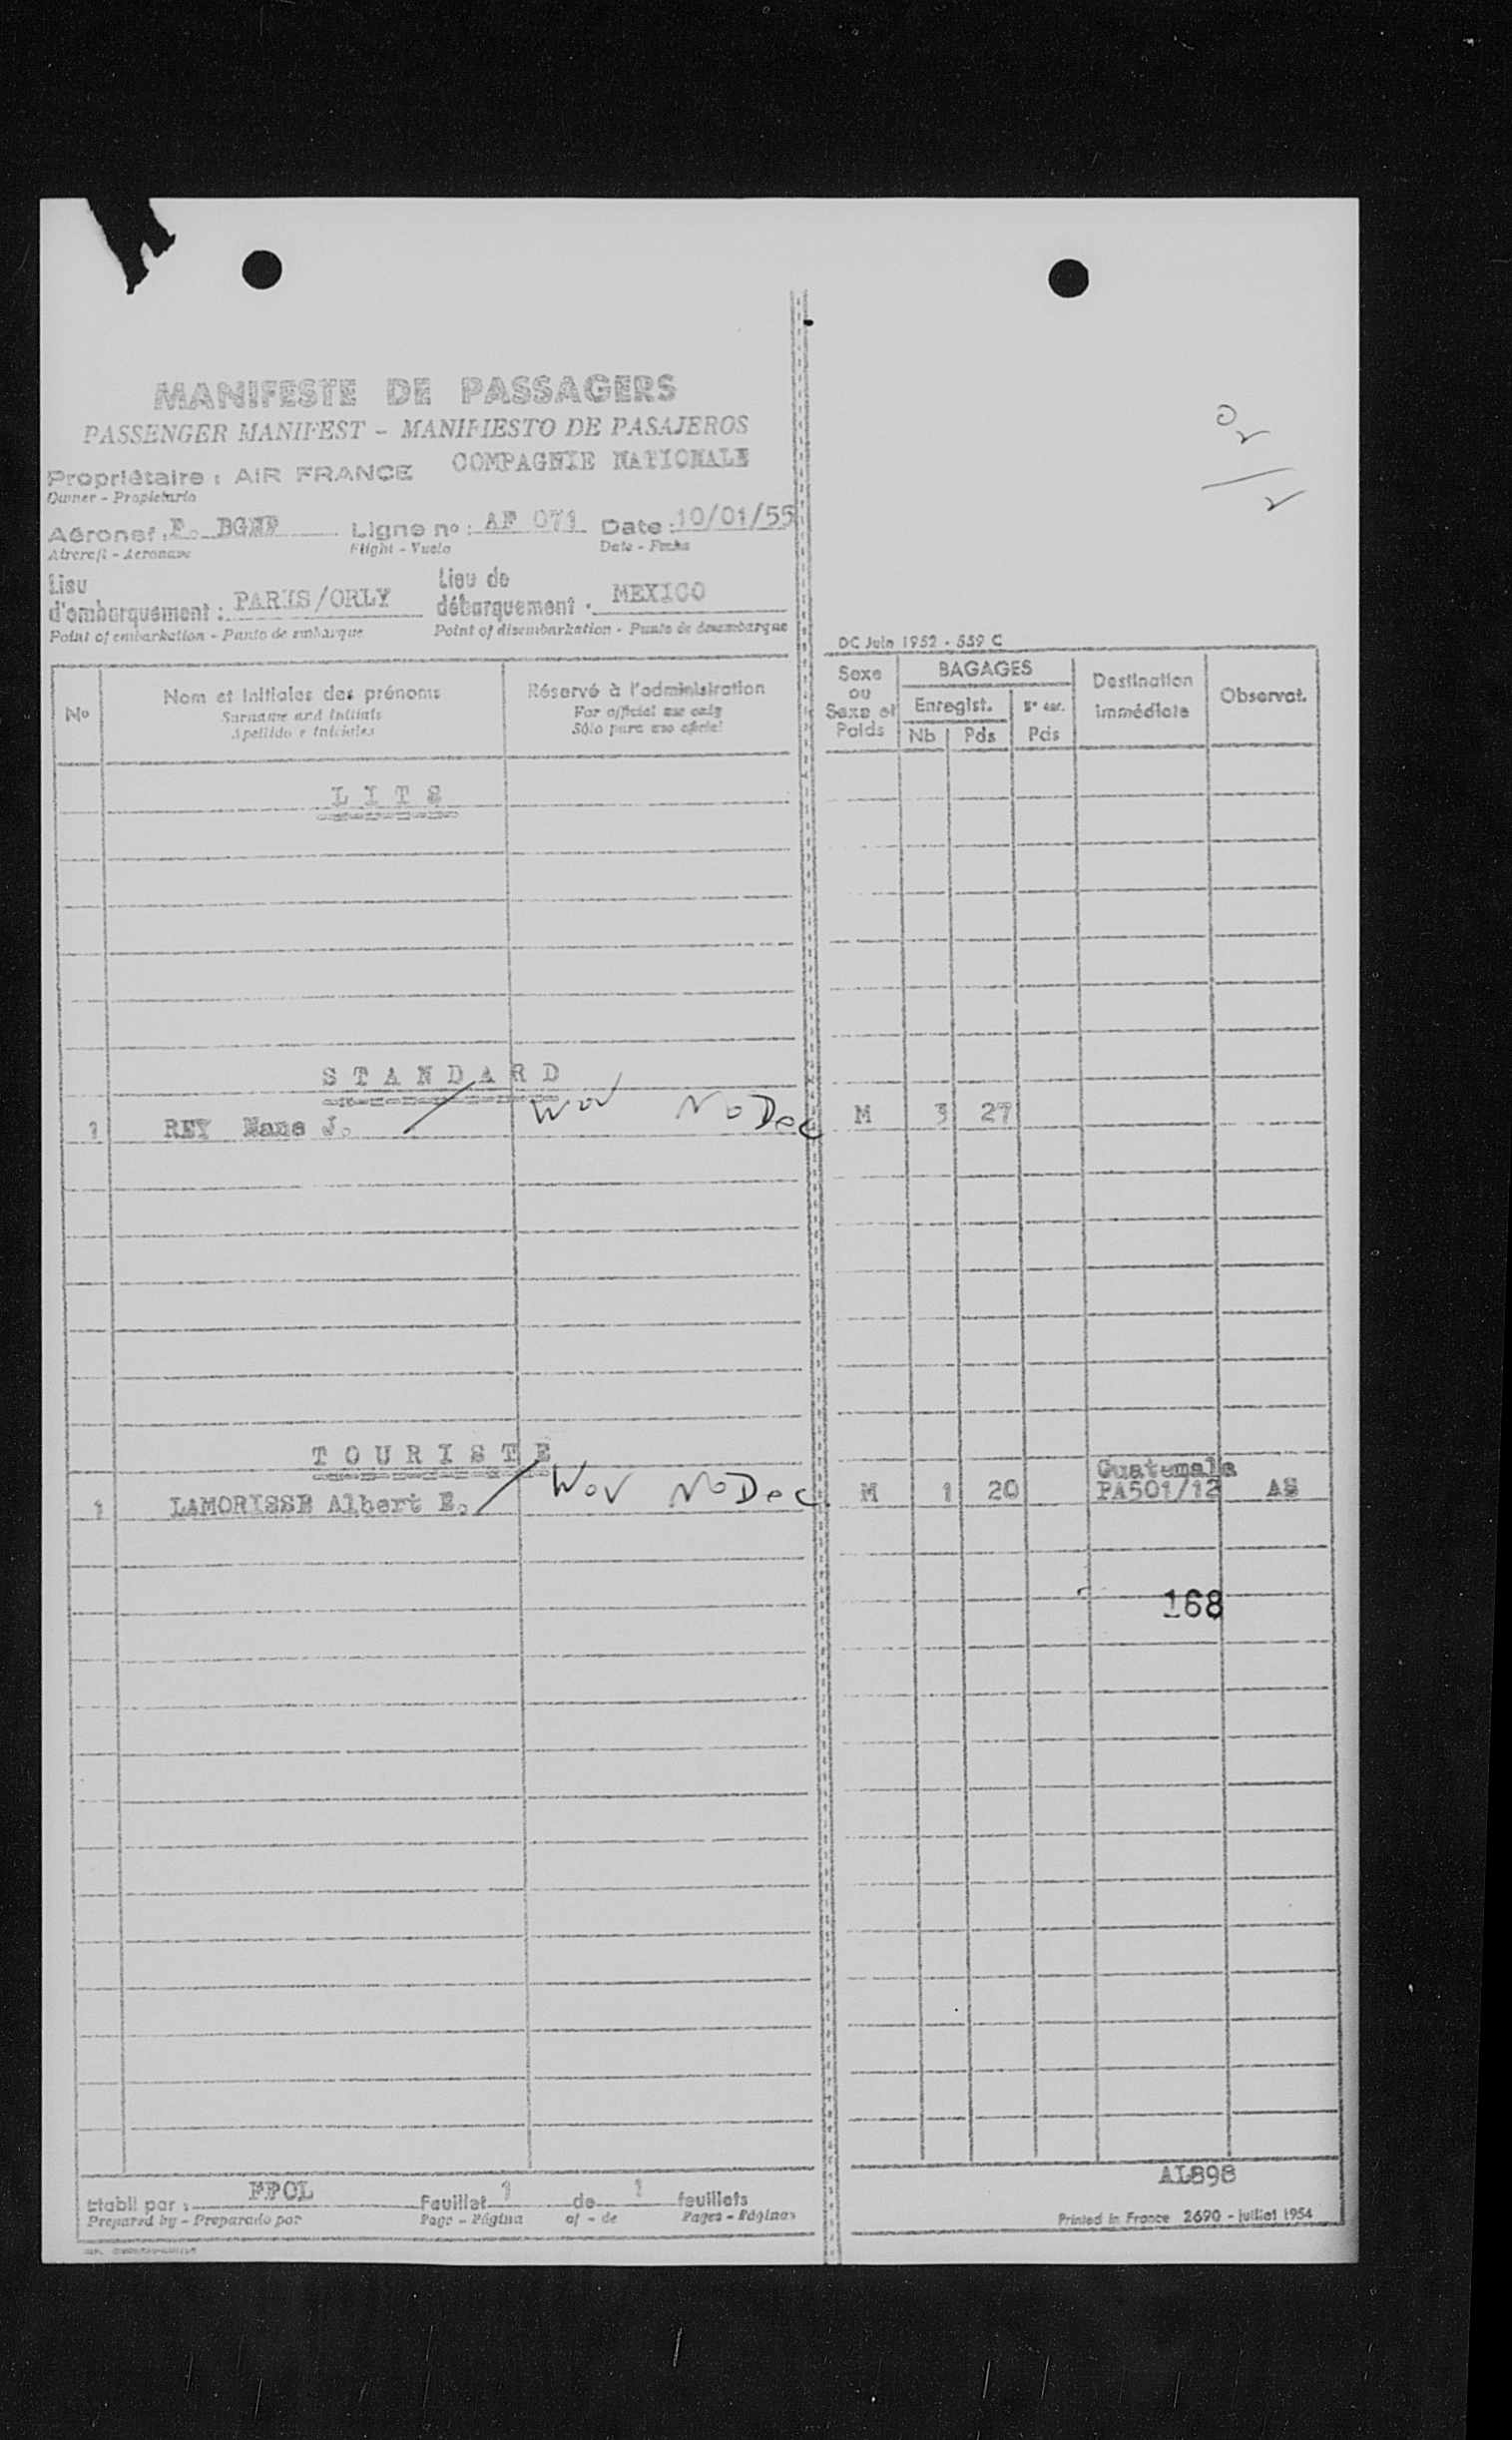 MANIFESTE DE PASSAGERS
PASSENGER MANIFEST - MANIFIESTO DE PASAJEROS
Propriétaire : AIR FRANCE COMPAGNIE NATIONALE
Owner - Propietario
Aéronef : F. BGNF Ligne nº : AF 071 Date : 10/01/55
Aircraft - Aeronave Flight - Vuelo Date - Fecha
Lieu d'embarquement : PARIS/ORLY Lieu de débarquement : MEXICO
Point of embarkation - Punto de embarque Point of disembarkation - Punto de desembarque
DC Juin 1952 - 559 C
Nº Nom et Initiales des prénoms Réservé à l'administration Sexe ou Sexe et Poids BAGAGES Destination immédiate Observat.
Surname and initials For official use only Enregist.
Apellido e iniciales Sólo para uso oficial Nb Pds Pds
LITS
STANDARD
1 REY J. NoDec M 3 27
TOURISTE
Guatemala
1 LAMORISSE Albert E. NoDec M 1 20 PA501/12 AS
168
AL898
Etabli par : FPOL Feuillet 1 de 1 feuillets
Prepared by - Preparado por Page - Página of - de Pages - Páginas
Printed in France 2690 - juillet 1954